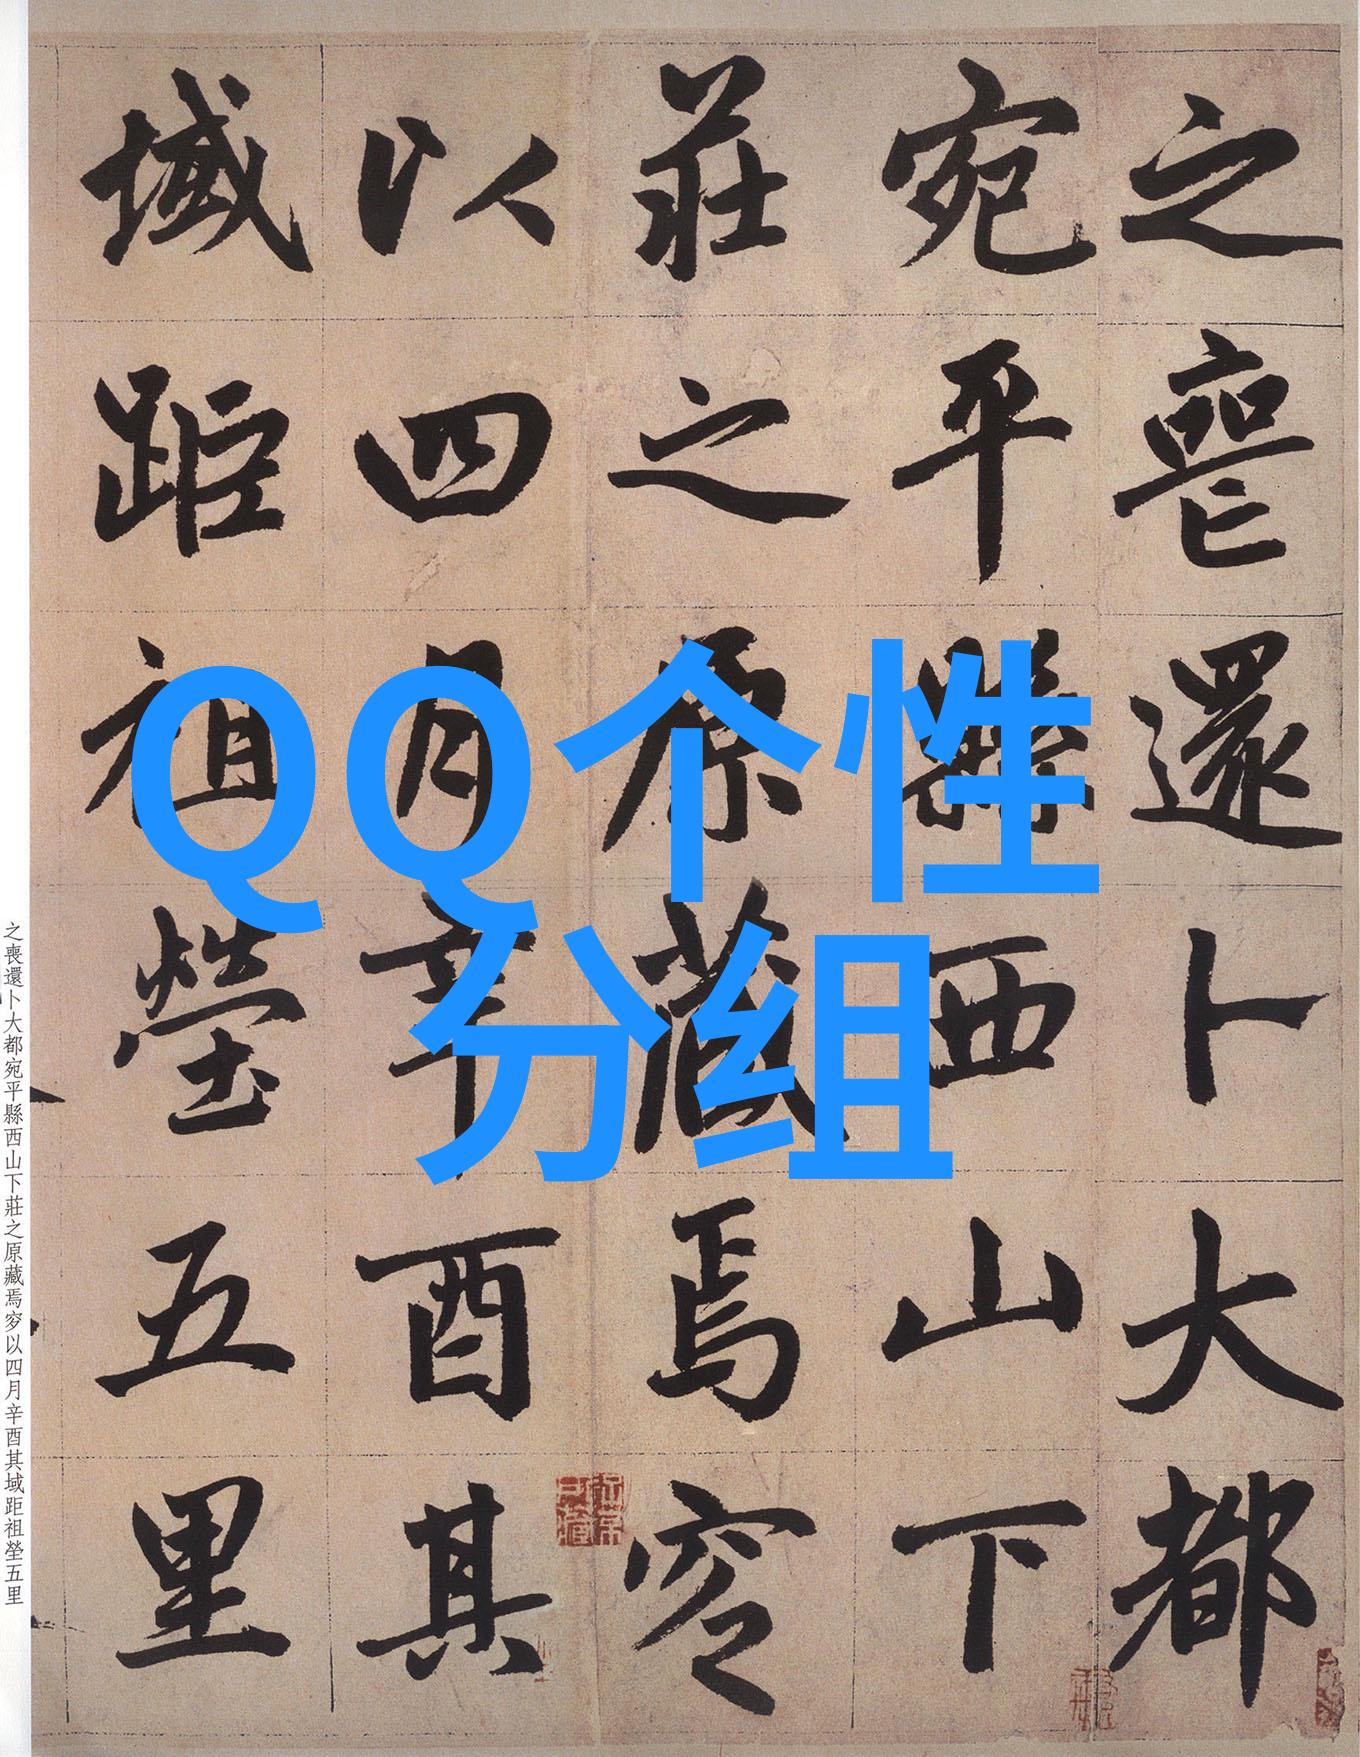 之喪還卜大都
宛平縣西山下
莊之原藏焉窆
以四月辛酉其
域距祖塋五里
QQ个性
分组
之喪還卜大都宛平縣西山下莊之原藏焉窆以四月辛酉其域距祖塋五里